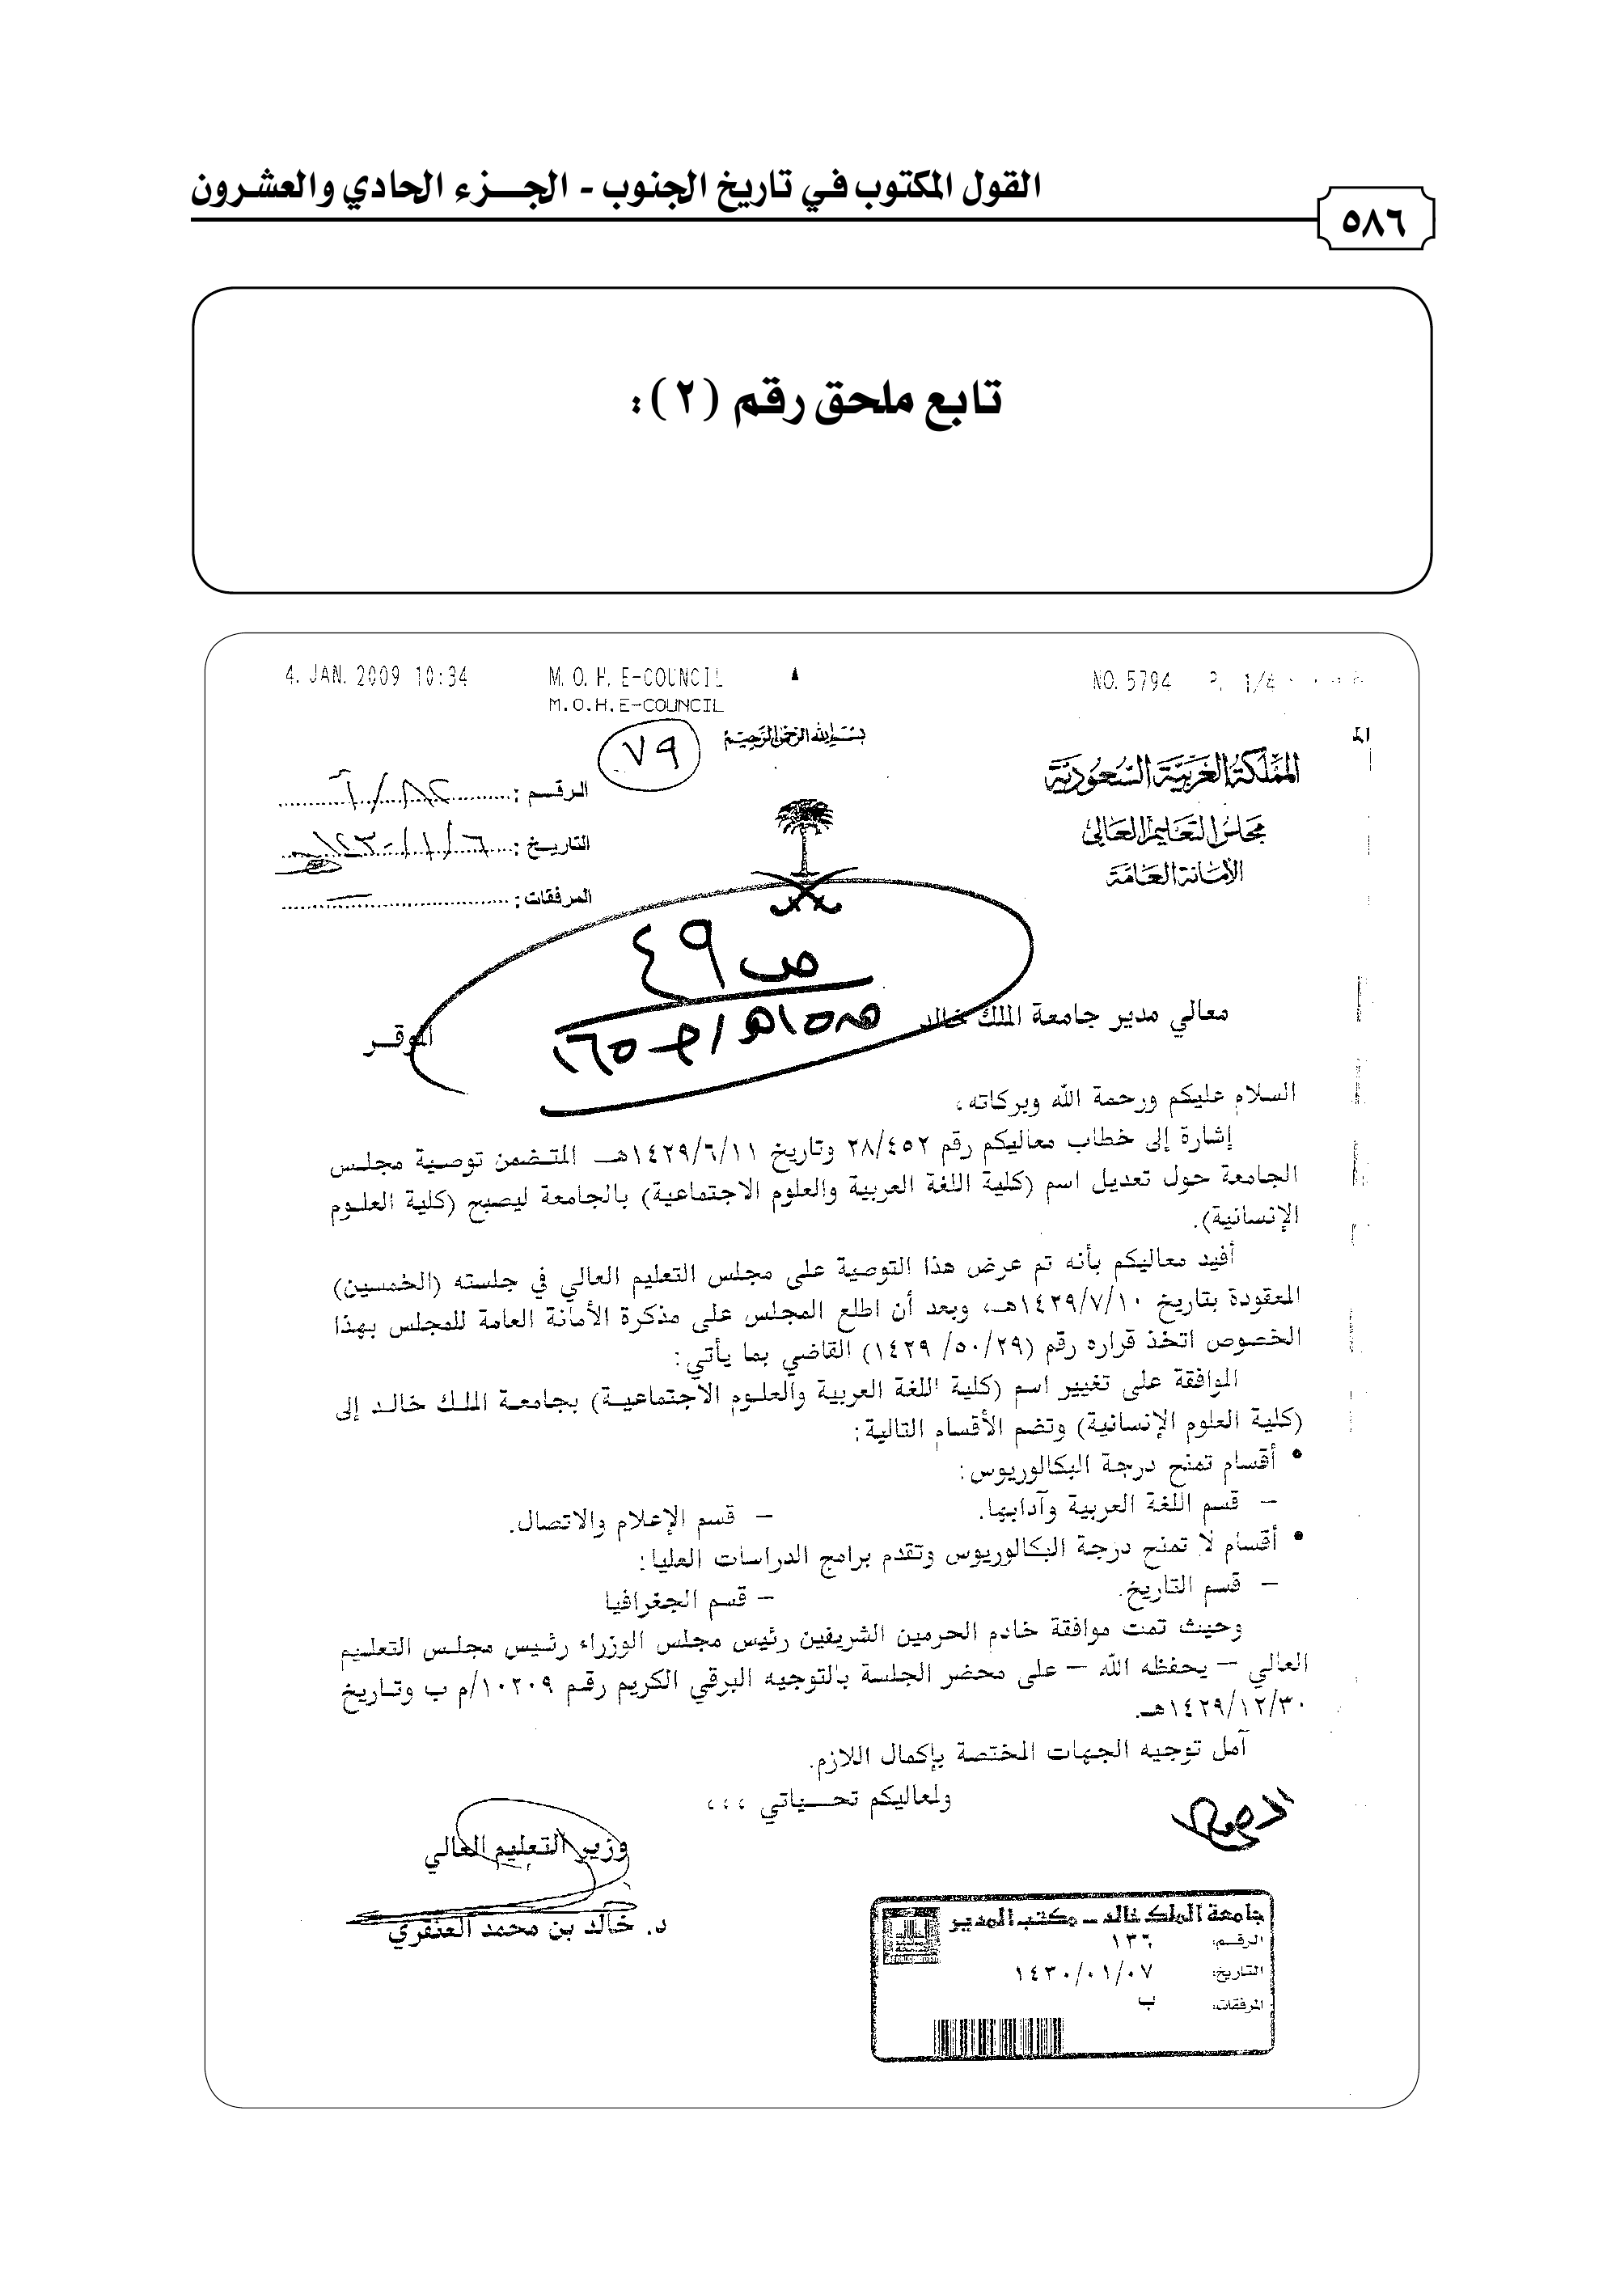 القول المكتوب في تاريخ الجنوب - الجـــزء الحادي والعشرون
٥٨٦
تابع ملحق رقم (٢):
4. JAN. 2009 10:34 M.O.H.E-COUNCIL NO. 5794 P. 1/4
M.O.H.E-COUNCIL
بسم الله الرحمن الرحيم
٧٩
المملكة العربية السعودية
مجلس التعليم العالي
الأمانة العامة
الرقم :
التاريخ :
المرفقات :
ص ٤٩
معالي مدير جامعة الملك خالد الموقر
السلام عليكم ورحمة الله وبركاته،
إشارة إلى خطاب معاليكم رقم ٢٨/٤٥٢ وتاريخ ١٤٢٩/٦/١١هـ المتضمن توصية مجلس
الجامعة حول تعديل اسم (كلية اللغة العربية والعلوم الاجتماعية) بالجامعة ليصبح (كلية العلوم
الإنسانية).
أفيد معاليكم بأنه تم عرض هذا التوصية على مجلس التعليم العالي في جلسته (الخمسين)
المعقودة بتاريخ ١٤٢٩/٧/١٠هـ، وبعد أن اطلع المجلس على مذكرة الأمانة العامة للمجلس بهذا
الخصوص اتخذ قراره رقم (١٤٢٩/٥٠/٢٩) القاضي بما يأتي:
الموافقة على تغيير اسم (كلية اللغة العربية والعلوم الاجتماعية) بجامعة الملك خالد إلى
(كلية العلوم الإنسانية) وتضم الأقسام التالية:
• أقسام تمنح درجة البكالوريوس:
– قسم اللغة العربية وآدابها. – قسم الإعلام والاتصال.
• أقسام لا تمنح درجة البكالوريوس وتقدم برامج الدراسات العليا:
– قسم التاريخ. – قسم الجغرافيا
وحيث تمت موافقة خادم الحرمين الشريفين رئيس مجلس الوزراء رئيس مجلس التعليم
العالي – يحفظه الله – على محضر الجلسة بالتوجيه البرقي الكريم رقم ١٠٢٠٩/م ب وتاريخ
١٤٢٩/١٢/٣٠هـ.
آمل توجيه الجهات المختصة بإكمال اللازم.
ولمعاليكم تحـــياتي ،،،
وزير التعليم العالي
د. خالد بن محمد العنقري
جامعة الملك خالد - مكتب المدير
الرقم: ١٣٦
التاريخ: ١٤٣٠/٠١/٠٧
المرفقات: ب